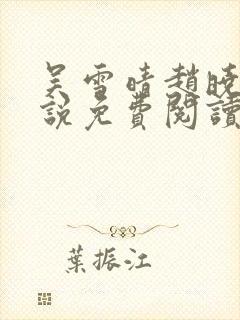 吴雪晴趙曉
說免費閱讀
葉振江